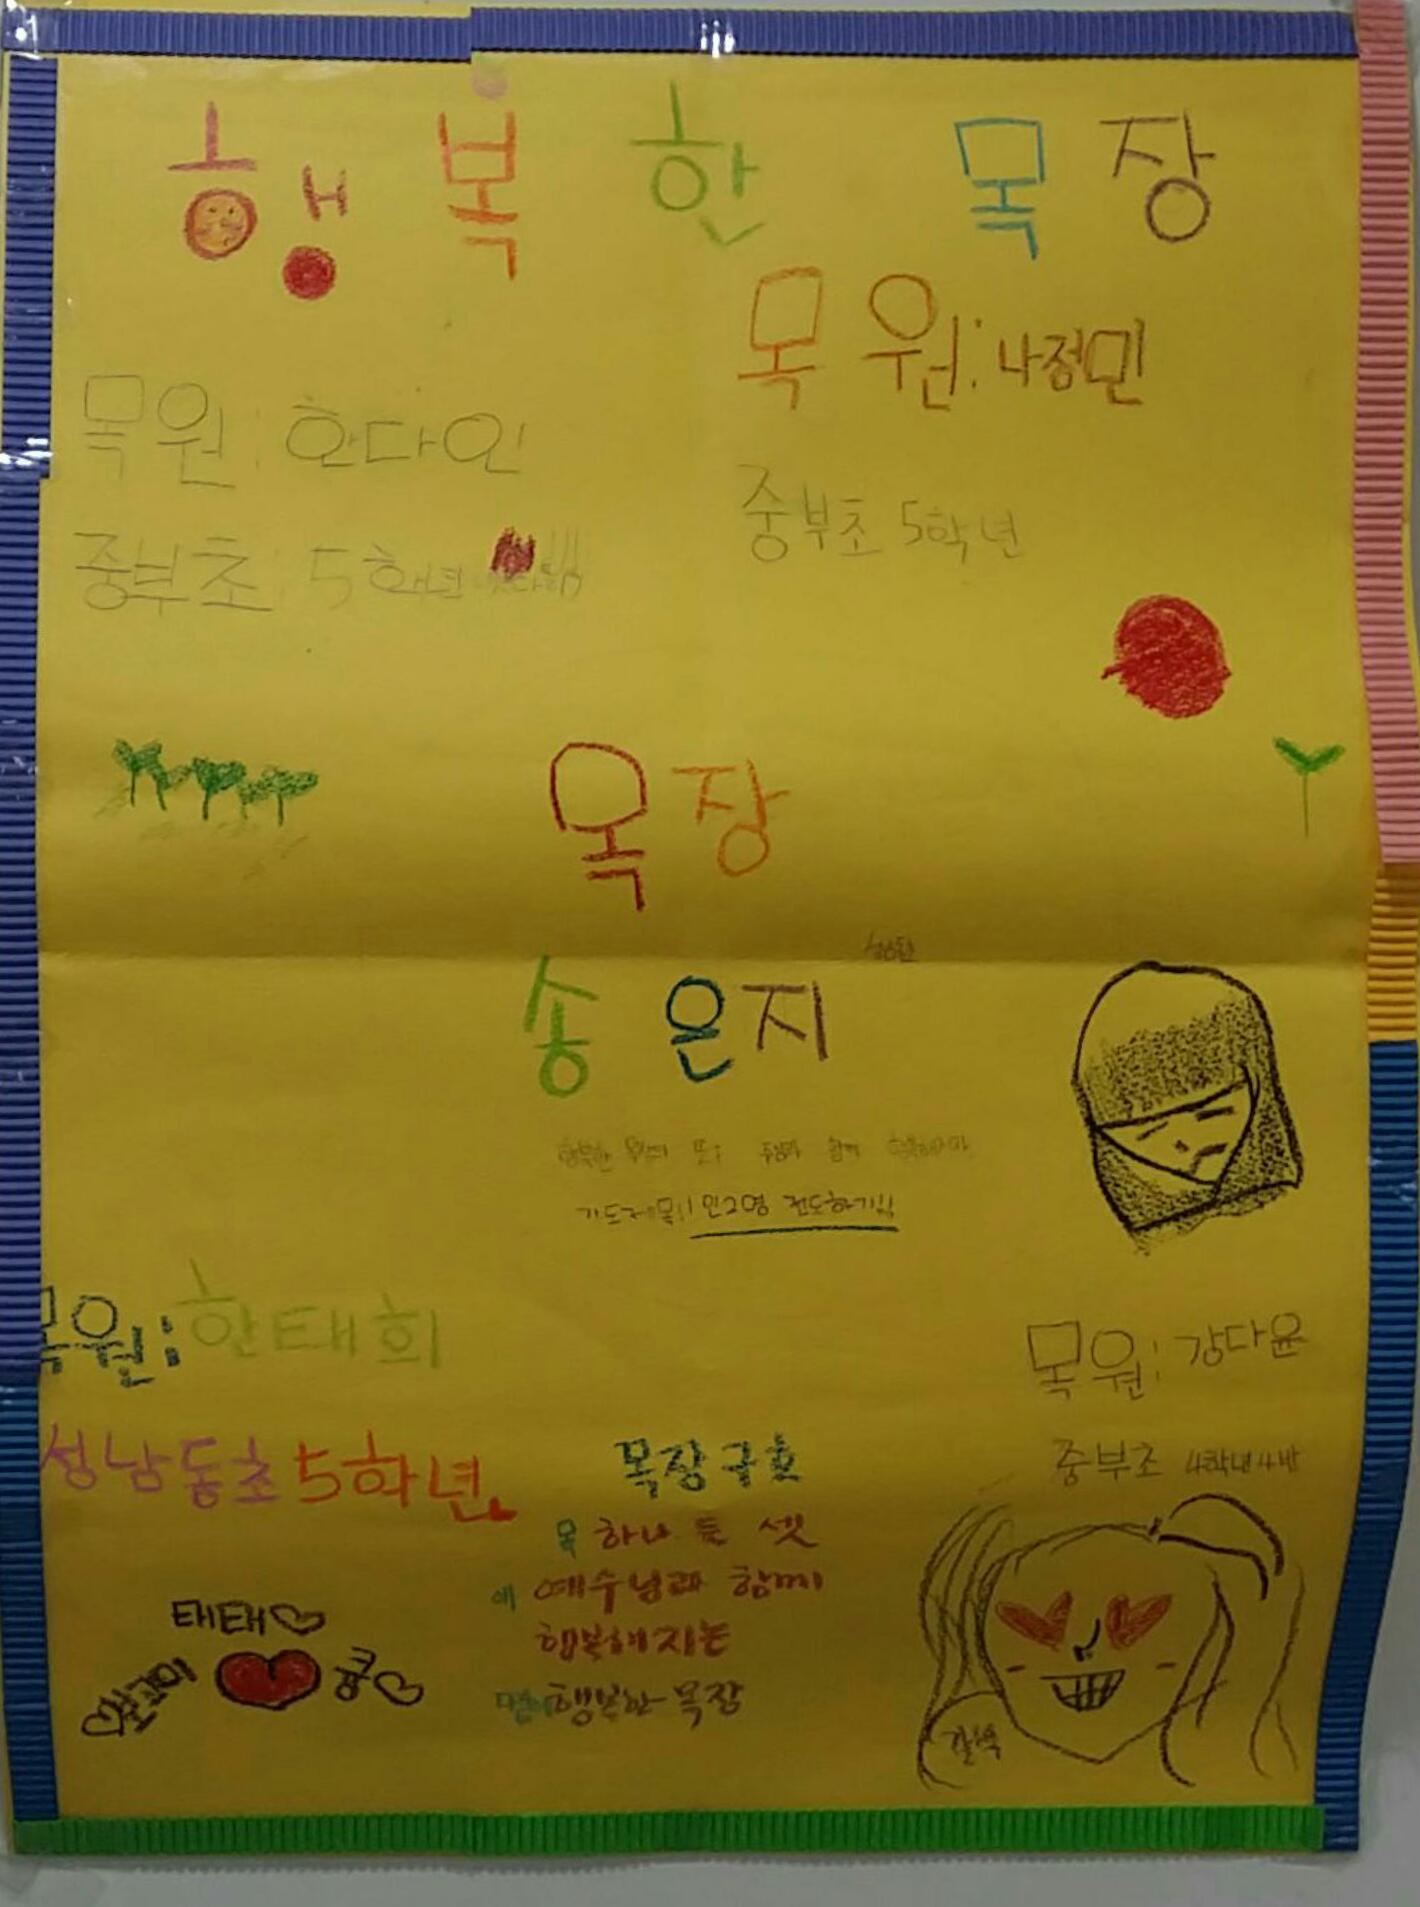 행복한 목장
목원: 나정민
목원: 한다인
중부초 5학년
중부초 5학년
목장
송은지
행복한 목장의 또: 주님과 함께 행복해지자
기도제목!! 인2명 전도하기!!
목원: 한태희
목원: 강다윤
성남동초 5학년
중부초 4학년 4반
목장구호
목 하나 둘 셋
예수님과 함께
행복해지는
행복한 목장
태태♡